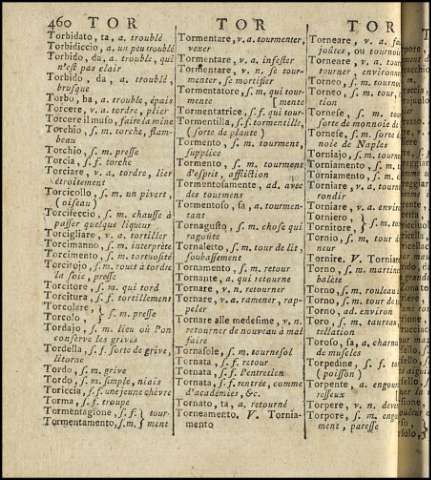 460 TOR TOR TOR
Torbidato, ta, a. troublé
Torbidiccio, a. un peu troublé
Torbido, da, a. trouble, qui
n'est pas clair
Torbido, da, a. troublé,
brusque
Torbo, ba, a. trouble, épais
Torcere, v. a. tordre, plier
Torcere il muso, faire la mine
Torchio, s. m. torche, flam-
beau
Torchio, s. m. presse
Torcia, s. f. torche
Torciare, v. a. tordre, lier
étroitement
Torcicollo, s. m. un pivert,
(oiseau)
Torcifeccio, s. m. chausse à
passer quelque liqueur
Torcigliare, v. a. tortiller
Torcimanno, s. m. interprète
Torcimento, s. m. tortuosité
Torcitojo, s. m. rouet à tordre
la soie, presse
Torcitore, s. m. qui tord
Torcitura, s. f. tortillement
Torcolare, }
Torcolo, } s. m. presse
Tordajo, s. m. lieu où l'on
conserve les grives
Tordella, s. f. sorte de grive,
litorne
Tordo, s. m. grive
Tordo, s. m. simple, niais
Toriccia, s. f. une jeune chèvre
Torma, s. f. troupe
Tormentagione, s. f. } tour-
Tormentamento, s. m. } ment
Tormentare, v. a. tourmenter,
vexer
Tormentare, v. a. infester
Tormentare, v. n. se tour-
menter, se mortifier
Tormentatore, s. m. qui tour-
mente [mente
Tormentatrice, s. f. qui tour-
Tormentilla, s. f. tormentille,
(sorte de plante)
Tormento, s. m. tourment,
supplice
Tormento, s. m. tourment
d'esprit, affliction
Tormentosamente, ad. avec
des tourmens
Tormentoso, sa, a. tourmen-
tant
Tornagusto, s. m. chose qui
ragoûte
Tornaletto, s. m. tour de lit,
soubassement
Tornamento, s. m. retour
Tornante, a. qui retourne
Tornare, v. n. retourner
Tornare, v. a. ramener, rap-
peler
Tornare alle medesime, v. n.
retourner de nouveau à mal
faire
Tornasole, s. m. tournesol
Tornata, s. f. retour
Tornata, s. f. l'entretien
Tornata, s. f. rentrée, comme
d'académies, &c.
Tornato, ta, a. retourné
Torneamento. V. Tornia-
mento
Torneare, v. n. fa
joûtes, ou tournoi
Torneare, v. a. tour
tourner, environn
Torneo, s. m. tourn
Torneo, s. m. tour,
tion
Tornese, s. m. tour
sorte de monnoie d
Tornese, s. m. sorte
noie de Naples
Torniajo, s. m. tourn
Torniamento, s. m. t
Torniamento, s. m. t
Torniare, v. a. tourne
rondir
Torniare, v. a. enviro
Torniero, }
Tornitore, } s. m. to
Tornio, s. m. tour d
neur
Tornire. V. Tornia
Torno, s. m. martine
balète
Torno, s. m. rouleau
Torno, s. m. tour de
Torno, ad. environ
Toro, s. m. taureau,
tellation
Toroso, sa, a. charnu
de muscles
Torpedine, s. f. to
(poisson)
Torpente, a. engou
resseux
Torpere, v. n. deve
Torpore, s. m. engou
ment, paresse